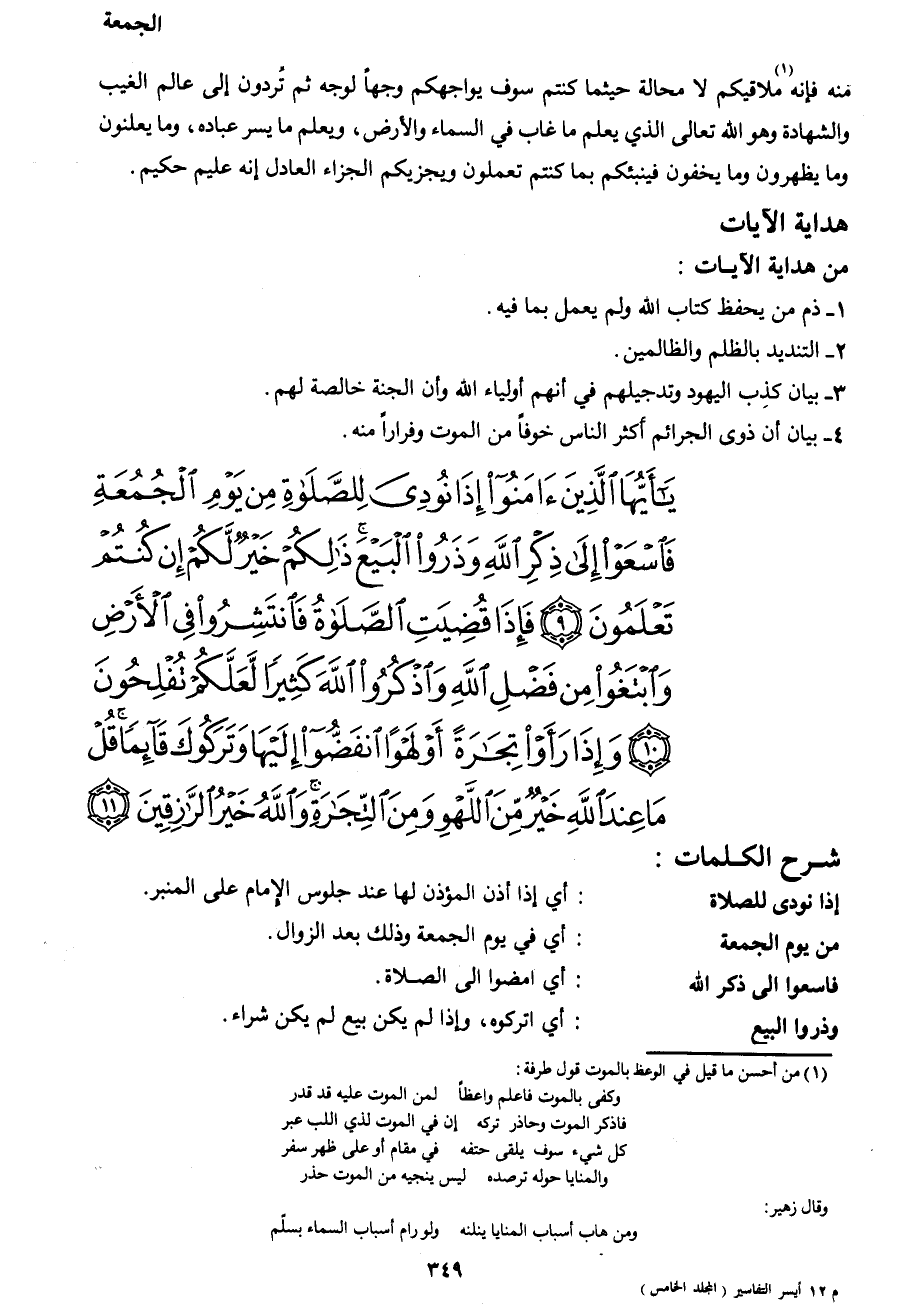 الجمعة
منه فإنه ملاقيكم(١) لا محالة حيثما كنتم سوف يواجهكم وجهاً لوجه ثم تُردون إلى عالم الغيب
والشهادة وهو الله تعالى الذي يعلم ما غاب في السماء والأرض، ويعلم ما يسر عباده، وما يعلنون
وما يظهرون وما يخفون فينبئكم بما كنتم تعملون ويجزيكم الجزاء العادل إنه عليم حكيم.
هداية الآيات
من هداية الآيـات :
١ـ ذم من يحفظ كتاب الله ولم يعمل بما فيه.
٢ـ التنديد بالظلم والظالمين.
٣ـ بيان كذِب اليهود وتدجيلهم في أنهم أولياء الله وأن الجنة خالصة لهم.
٤ـ بيان أن ذوى الجرائم أكثر الناس خوفاً من الموت وفراراً منه.
يَٰٓأَيُّهَا ٱلَّذِينَ ءَامَنُوٓا۟ إِذَا نُودِىَ لِلصَّلَوٰةِ مِن يَوْمِ ٱلْجُمُعَةِ
فَٱسْعَوْا۟ إِلَىٰ ذِكْرِ ٱللَّهِ وَذَرُوا۟ ٱلْبَيْعَ ۚ ذَٰلِكُمْ خَيْرٌ لَّكُمْ إِن كُنتُمْ
تَعْلَمُونَ ٩ فَإِذَا قُضِيَتِ ٱلصَّلَوٰةُ فَٱنتَشِرُوا۟ فِى ٱلْأَرْضِ
وَٱبْتَغُوا۟ مِن فَضْلِ ٱللَّهِ وَٱذْكُرُوا۟ ٱللَّهَ كَثِيرًا لَّعَلَّكُمْ تُفْلِحُونَ
١٠ وَإِذَا رَأَوْا۟ تِجَٰرَةً أَوْ لَهْوًا ٱنفَضُّوٓا۟ إِلَيْهَا وَتَرَكُوكَ قَآئِمًا ۚ قُلْ
مَا عِندَ ٱللَّهِ خَيْرٌ مِّنَ ٱللَّهْوِ وَمِنَ ٱلتِّجَٰرَةِ ۚ وَٱللَّهُ خَيْرُ ٱلرَّٰزِقِينَ ١١
شـرح الكـلمات :
إذا نودى للصلاة : أي إذا أذن المؤذن لها عند جلوس الإمام على المنبر.
من يوم الجمعة : أي في يوم الجمعة وذلك بعد الزوال.
فاسعوا الى ذكر الله : أي امضوا الى الصـلاة.
وذروا البيع : أي اتركوه، وإذا لم يكن بيع لم يكن شراء.
(١) من أحسن ما قيل في الوعظ بالموت قول طرفة:
وكفى بالموت فاعلم واعظاً لمن الموت عليه قد قدر
فاذكر الموت وحاذر تركه إن في الموت لذي اللب عبر
كل شيء سوف يلقى حتفه في مقام أو على ظهر سفر
والمنايا حوله ترصده ليس ينجيه من الموت حذر
وقال زهير:
ومن هاب أسباب المنايا ينلنه ولو رام أسباب السماء بسلّم
٣٤٩
م ١٢ أيسر التفاسير ( المجلد الخامس )